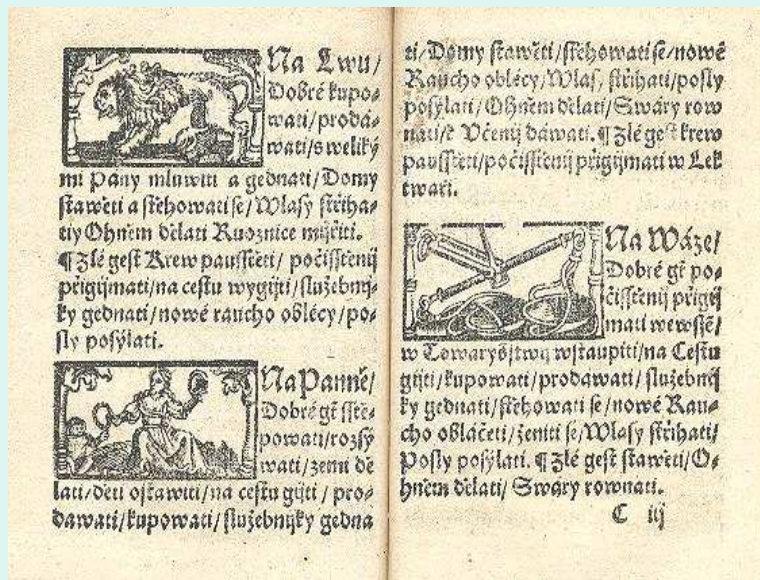 Na Lwu/
Dobré kupo-
wati/prodá-
wati/s weliký
mi Pány mluwiti a gednati/Domy
stawěti a stěhowati se/Wlasy střiha-
ti/Ohněm dělati Ruoznice mířiti.
¶ Zlé gest Krew pausstěti/počisstěnij
přigijmati/na cestu wygijti/služebnij-
ky gednati/nowé raucho oblécy/po-
sly posýlati.
Na Panně/
Dobré gt sstě-
powati/rozsý
wati/zemi dě
lati/děti ostawiti/na cestu gijti/pro-
dawati/kupowati/služebnijky gedna
ti/Domy stawěti/stěhowati se/nowé
Raucho oblécy/Wlas, střihati/posly
posýlati/Ohněm dělati/Swáry row
nati/k Včenij dáwati. ¶ Zlé gest krew
pausstěti/počisstěnij přigijmati w Lek
twaři.
Na Wáze/
Dobré gt po-
čisstěnij přigij
mati wewssě/
w Towarysstwij wstaupiti/na Cestu
gijti/kupowati/prodawati/služebnij
ky gednati/stěhowati se/nowé Rau-
cho obláčeti/ženiti se/Wlasy střihati/
Posly posýlati. ¶ Zlé gest stawěti/O-
hněm dělati/Swáry rownati.
C iij